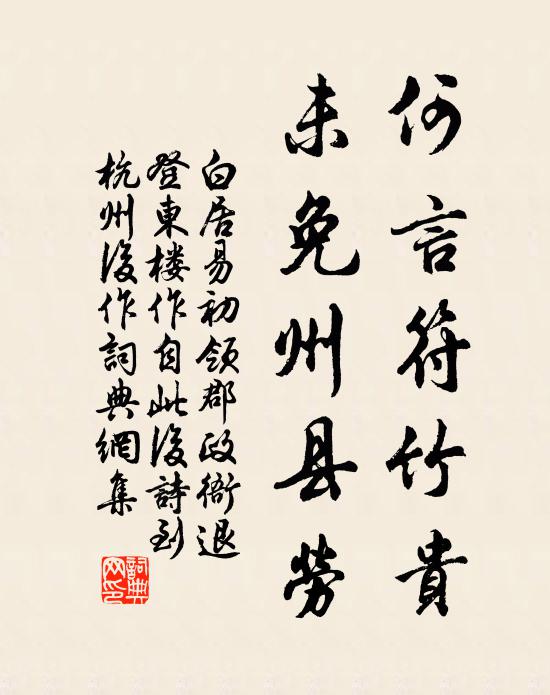 何言符竹貴
未免州县勞
白居易初领郡政衙退
登東楼作自此後詩到
杭州後作詞典網集
詞典
网印